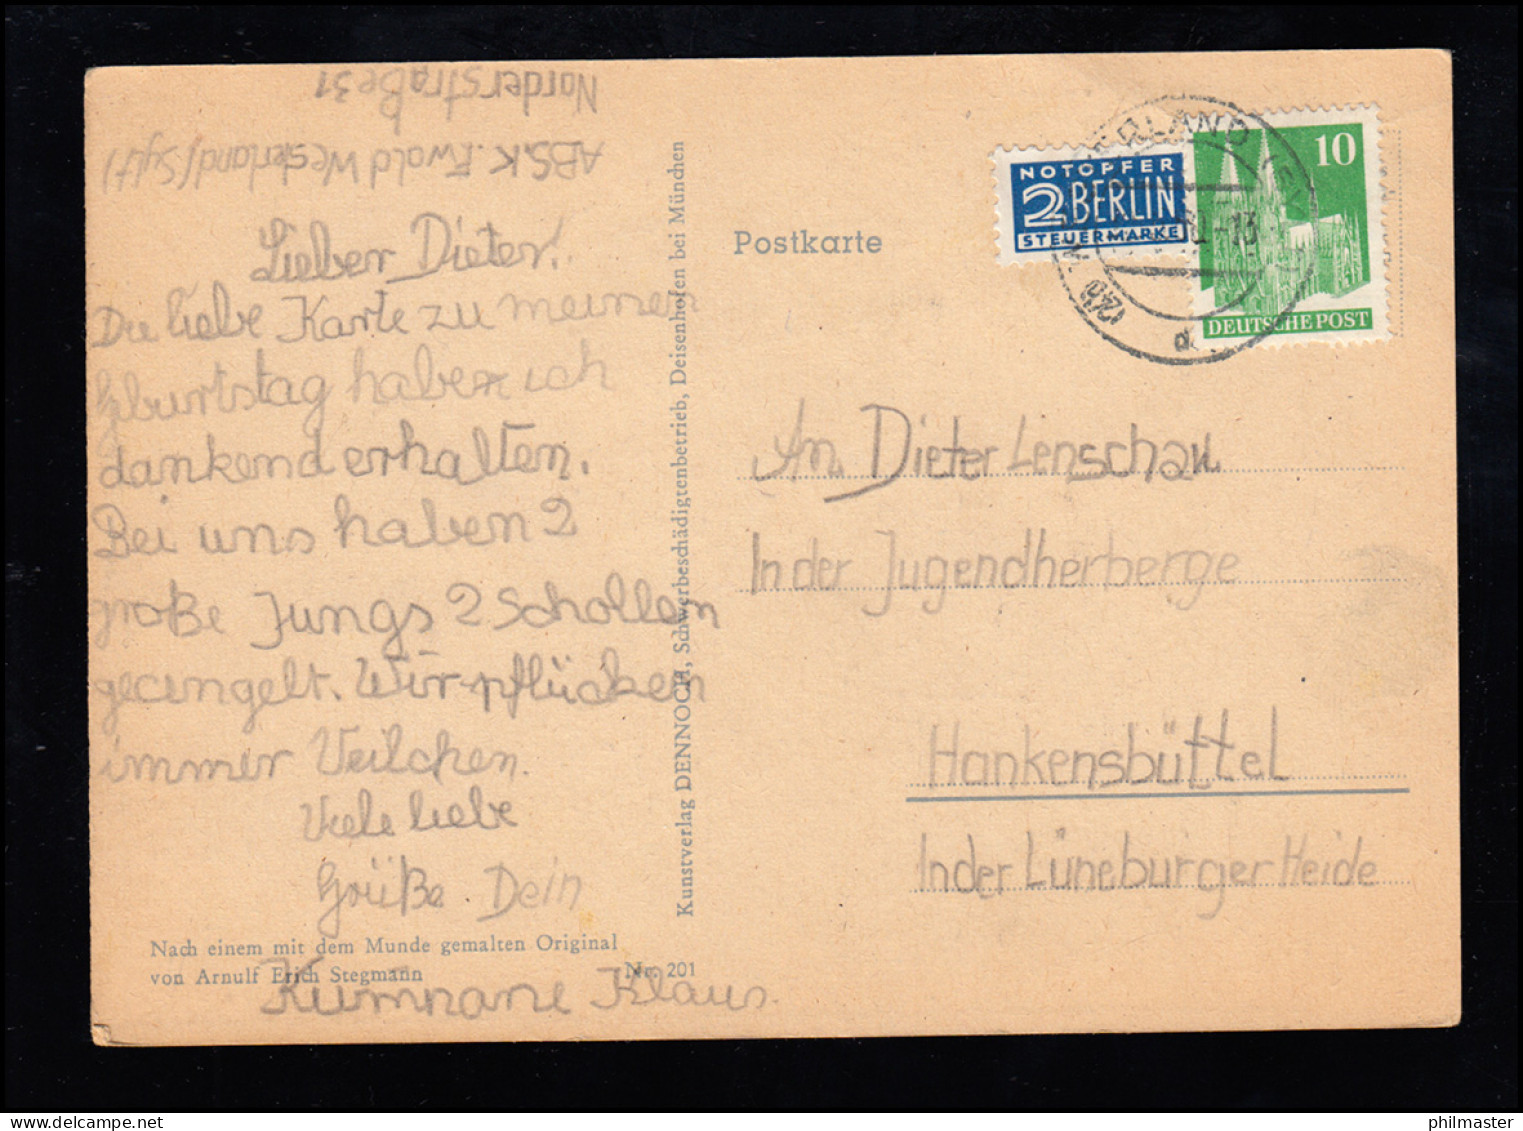 Norderstraße 31
ABS. K. Ewald Westerland/Sylt)
Lieber Dieter!
Die liebe Karte zu meinen
Geburtstag haben ich
dankend erhalten.
Bei uns haben 2
große Jungs 2 Schollen
geangelt. Wir pflücken
immer Veilchen.
Viele liebe
Grüße Dein
Klaus
Nach einem mit dem Munde gemalten Original
von Arnulf Erich Stegmann
Nr. 201
Kunstverlag DENNOCH, Schwerbeschädigtenbetrieb, Deisenhofen bei München
Postkarte
NOTOPFER
2 BERLIN
STEUERMARKE
10
DEUTSCHE POST
An Dieter Lenschau
In der Jugendherberge
Hankensbüttel
In der Lüneburger Heide
philmaster.com